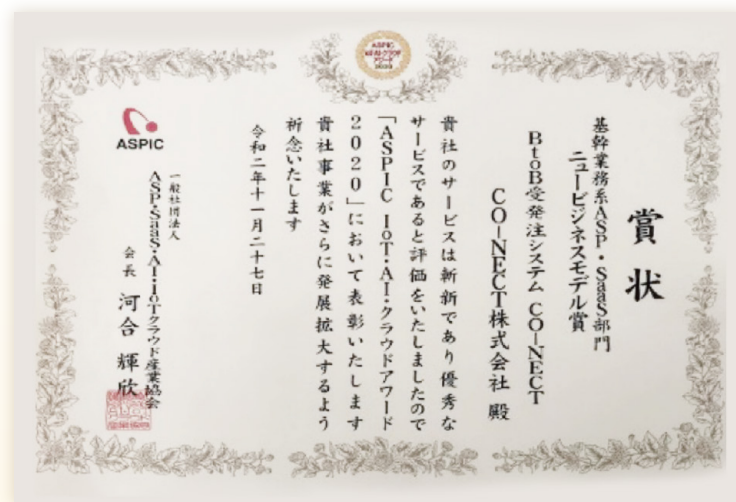 賞状
基幹業務系ASP・SaaS部門
ニュービジネスモデル賞
BtoB受発注システム CO-NECT
CO-NECT株式会社 殿
貴社のサービスは斬新であり優秀な
サービスであると評価をいたしましたので
「ASPIC IoT・AI・クラウドアワード
2020」において表彰いたします
貴社事業がさらに発展拡大するよう
祈念いたします
令和二年十一月二十七日
ASPIC
一般社団法人
ASP・SaaS・AI・IoTクラウド産業協会
会長 河合 輝欣